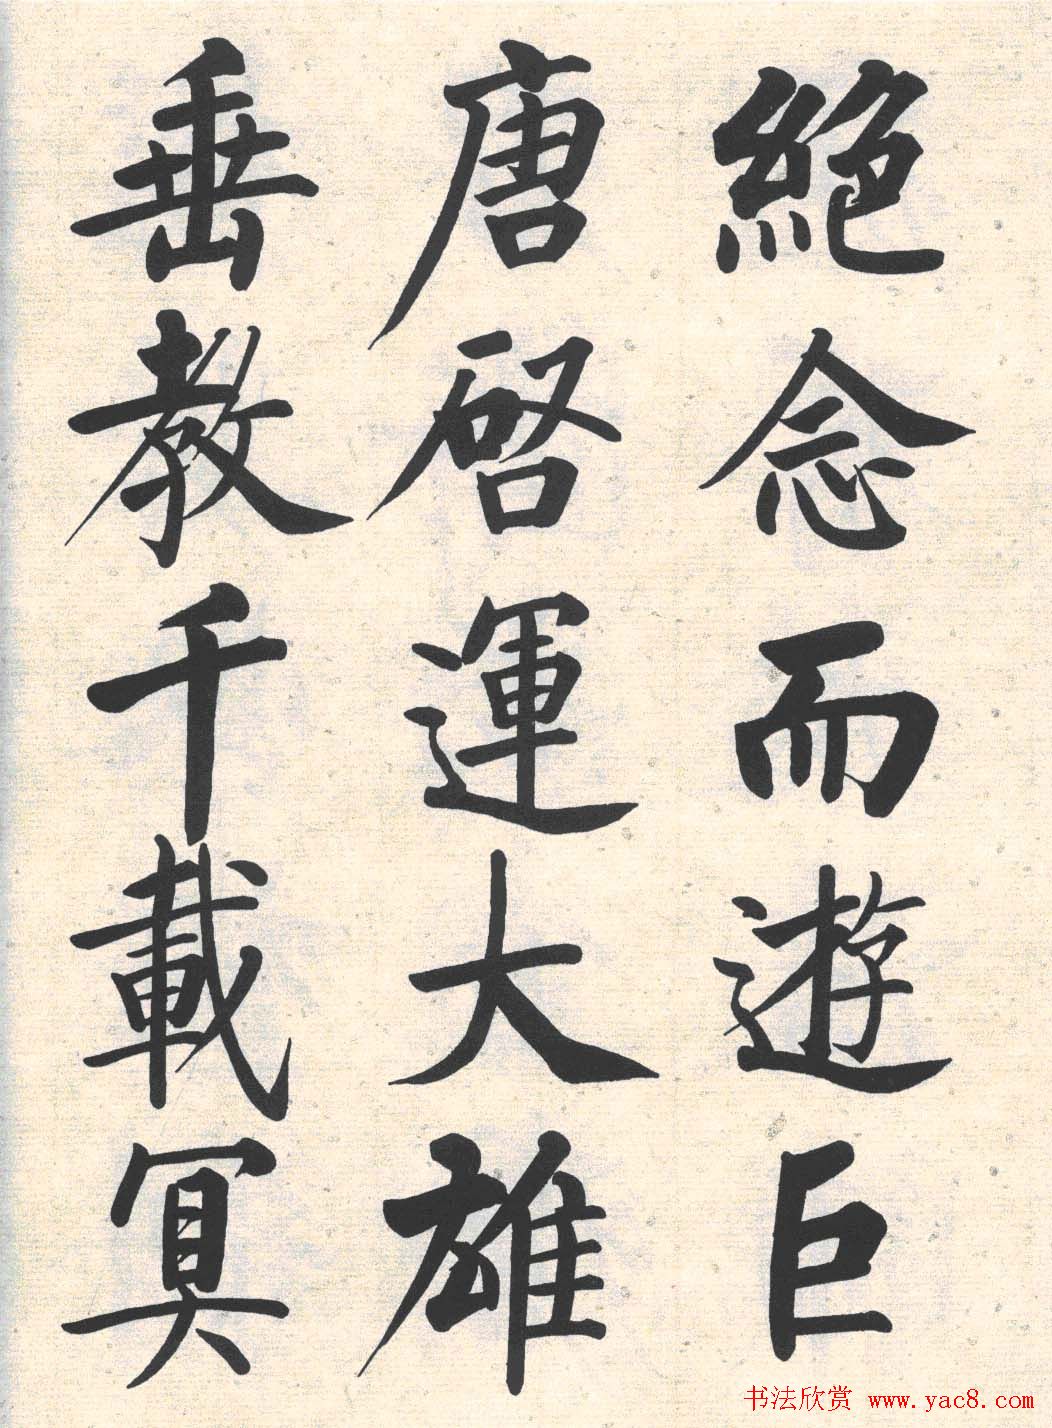 絕念而遊巨
唐啓運大雄
垂教千載冥
书法欣赏 www.yac8.com